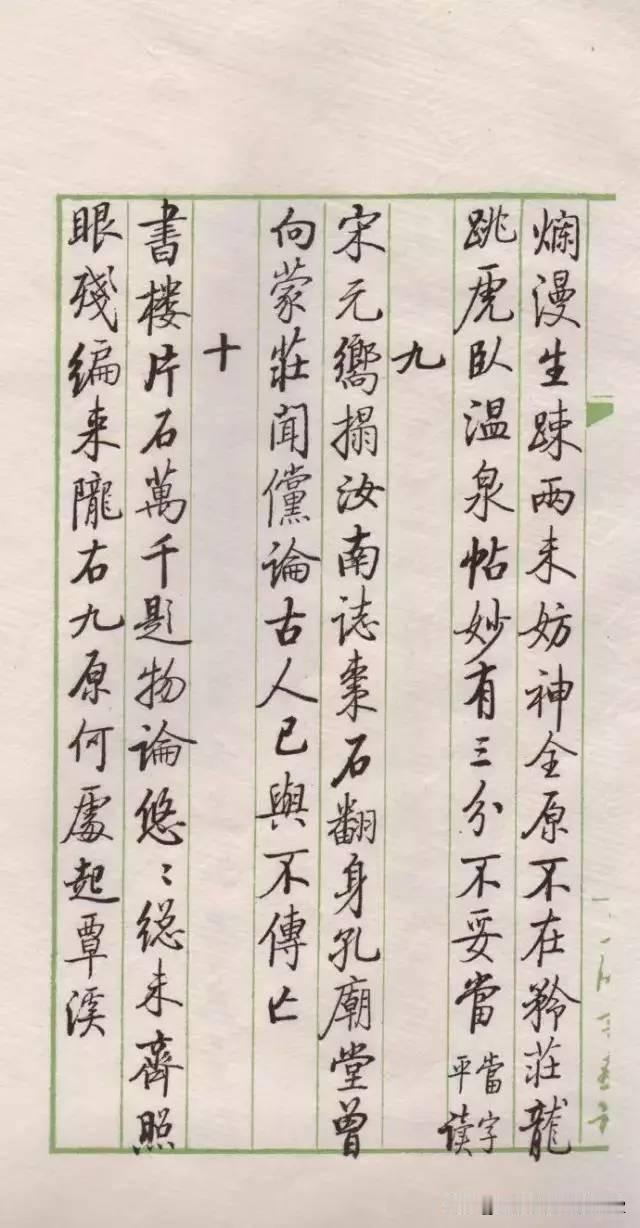 爛漫生疎兩未妨神全原不在矜莊龍
跳虎臥温泉帖妙有三分不妥當當字平读
九
宋元嚮搨汝南誌棗石翻身孔廟堂曾
向蒙莊聞儻論古人已與不傳亡
十
書楼片石萬千題物論悠〻総未齊照
眼殘編来隴右九原何處起覃溪